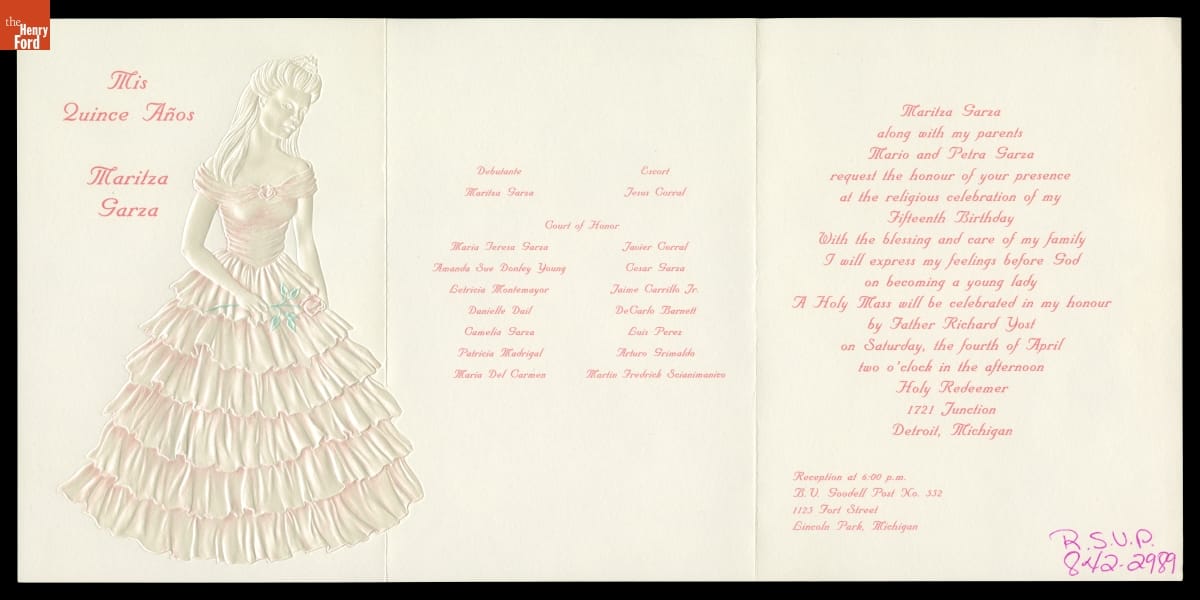 the
Henry
Ford
Mis
Quince Años
Maritza
Garza
Debutante Escort
Maritza Garza Jesus Corral
Court of Honor
Maria Teresa Garza Javier Corral
Amanda Sue Donley Young Cesar Garza
Letricia Montemayor Jaime Carrillo Jr.
Danielle Dail DeCarlo Barnett
Camelia Garza Luis Perez
Patricia Madrigal Arturo Grimaldo
Maria Del Carmen Martin Fredrick Scianimanico
Maritza Garza
along with my parents
Mario and Petra Garza
request the honour of your presence
at the religious celebration of my
Fifteenth Birthday
With the blessing and care of my family
I will express my feelings before God
on becoming a young lady
A Holy Mass will be celebrated in my honour
by Father Richard Yost
on Saturday, the fourth of April
two o'clock in the afternoon
Holy Redeemer
1721 Junction
Detroit, Michigan
Reception at 6:00 p.m.
B.V. Goodell Post No. 332
1123 Fort Street
Lincoln Park, Michigan
R.S.V.P.
842-2989